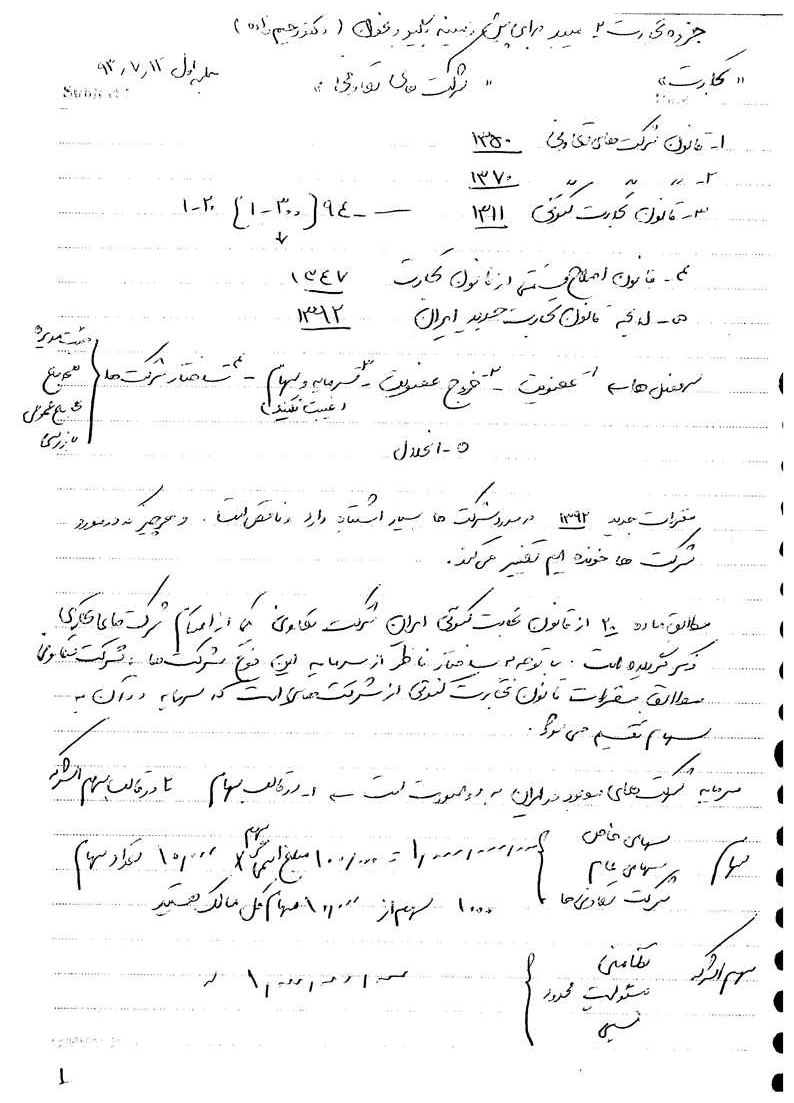 جزوه تجارت ۲
جلسه اول ۹۳,۷,۱۲
«تجارت» «شرکت های تعاونی»
۱- قانون شرکت های تعاونی ۱۳۵۰
۲- 〃 〃 〃 ۱۳۷۰
۳- قانون تجارت کنونی ۱۳۱۱ — ۹۴ - [۳۰۰ - ۱] ۲۰ - ۱
۴- قانون اصلاح قسمتی از قانون تجارت ۱۳۴۷
۵- لایحه قانون تجارت جدید ایران ۱۳۹۲
سرفصل ها ← ۱- عضویت ۲- خروج عضویت ۳- سرمایه و سهام ۴- ساختار شرکت ها
(غیبت نکنید)
هیئت مدیره
مجامع
مجامع عمومی
بازرسی
۵- انحلال
مقررات جدید ۱۳۹۲ در مورد شرکت ها بسیار اشتباه دارد و ناقص است. و هر چیز که در مورد
شرکت ها خونده ایم تغییر می کند.
مطابق ماده ۲۰ از قانون تجارت کنونی ایران شرکت تعاونی یکی از اقسام شرکت های تجاری
ذکر گردیده است. با توجه به ساختار ناظر از سرمایه این نوع شرکت ها، شرکت تعاونی
مطابق مقررات قانون تجارت کنونی از شرکت هایی است که سرمایه در آن به
سهام تقسیم می شود.
سرمایه شرکت های موجود در ایران به دو صورت است ← ۱- در قالب سهام ۲- در قالب سهم الشرکه
سهام
سهامی خاص
سهامی عام
شرکت تعاونی ها
۱,۰۰۰,۰۰۰,۰۰۰ = ۱۰۰,۰۰۰ مبلغ اسمی سهم × ۱۰,۰۰۰ تعداد سهام
۱۰۰۰ سهم از ۱۰,۰۰۰ سهام کل مالک هستید
سهم الشرکه
تضامنی
مسئولیت محدود
نسبی
۱,۰۰۰,۰۰۰,۰۰۰
۱